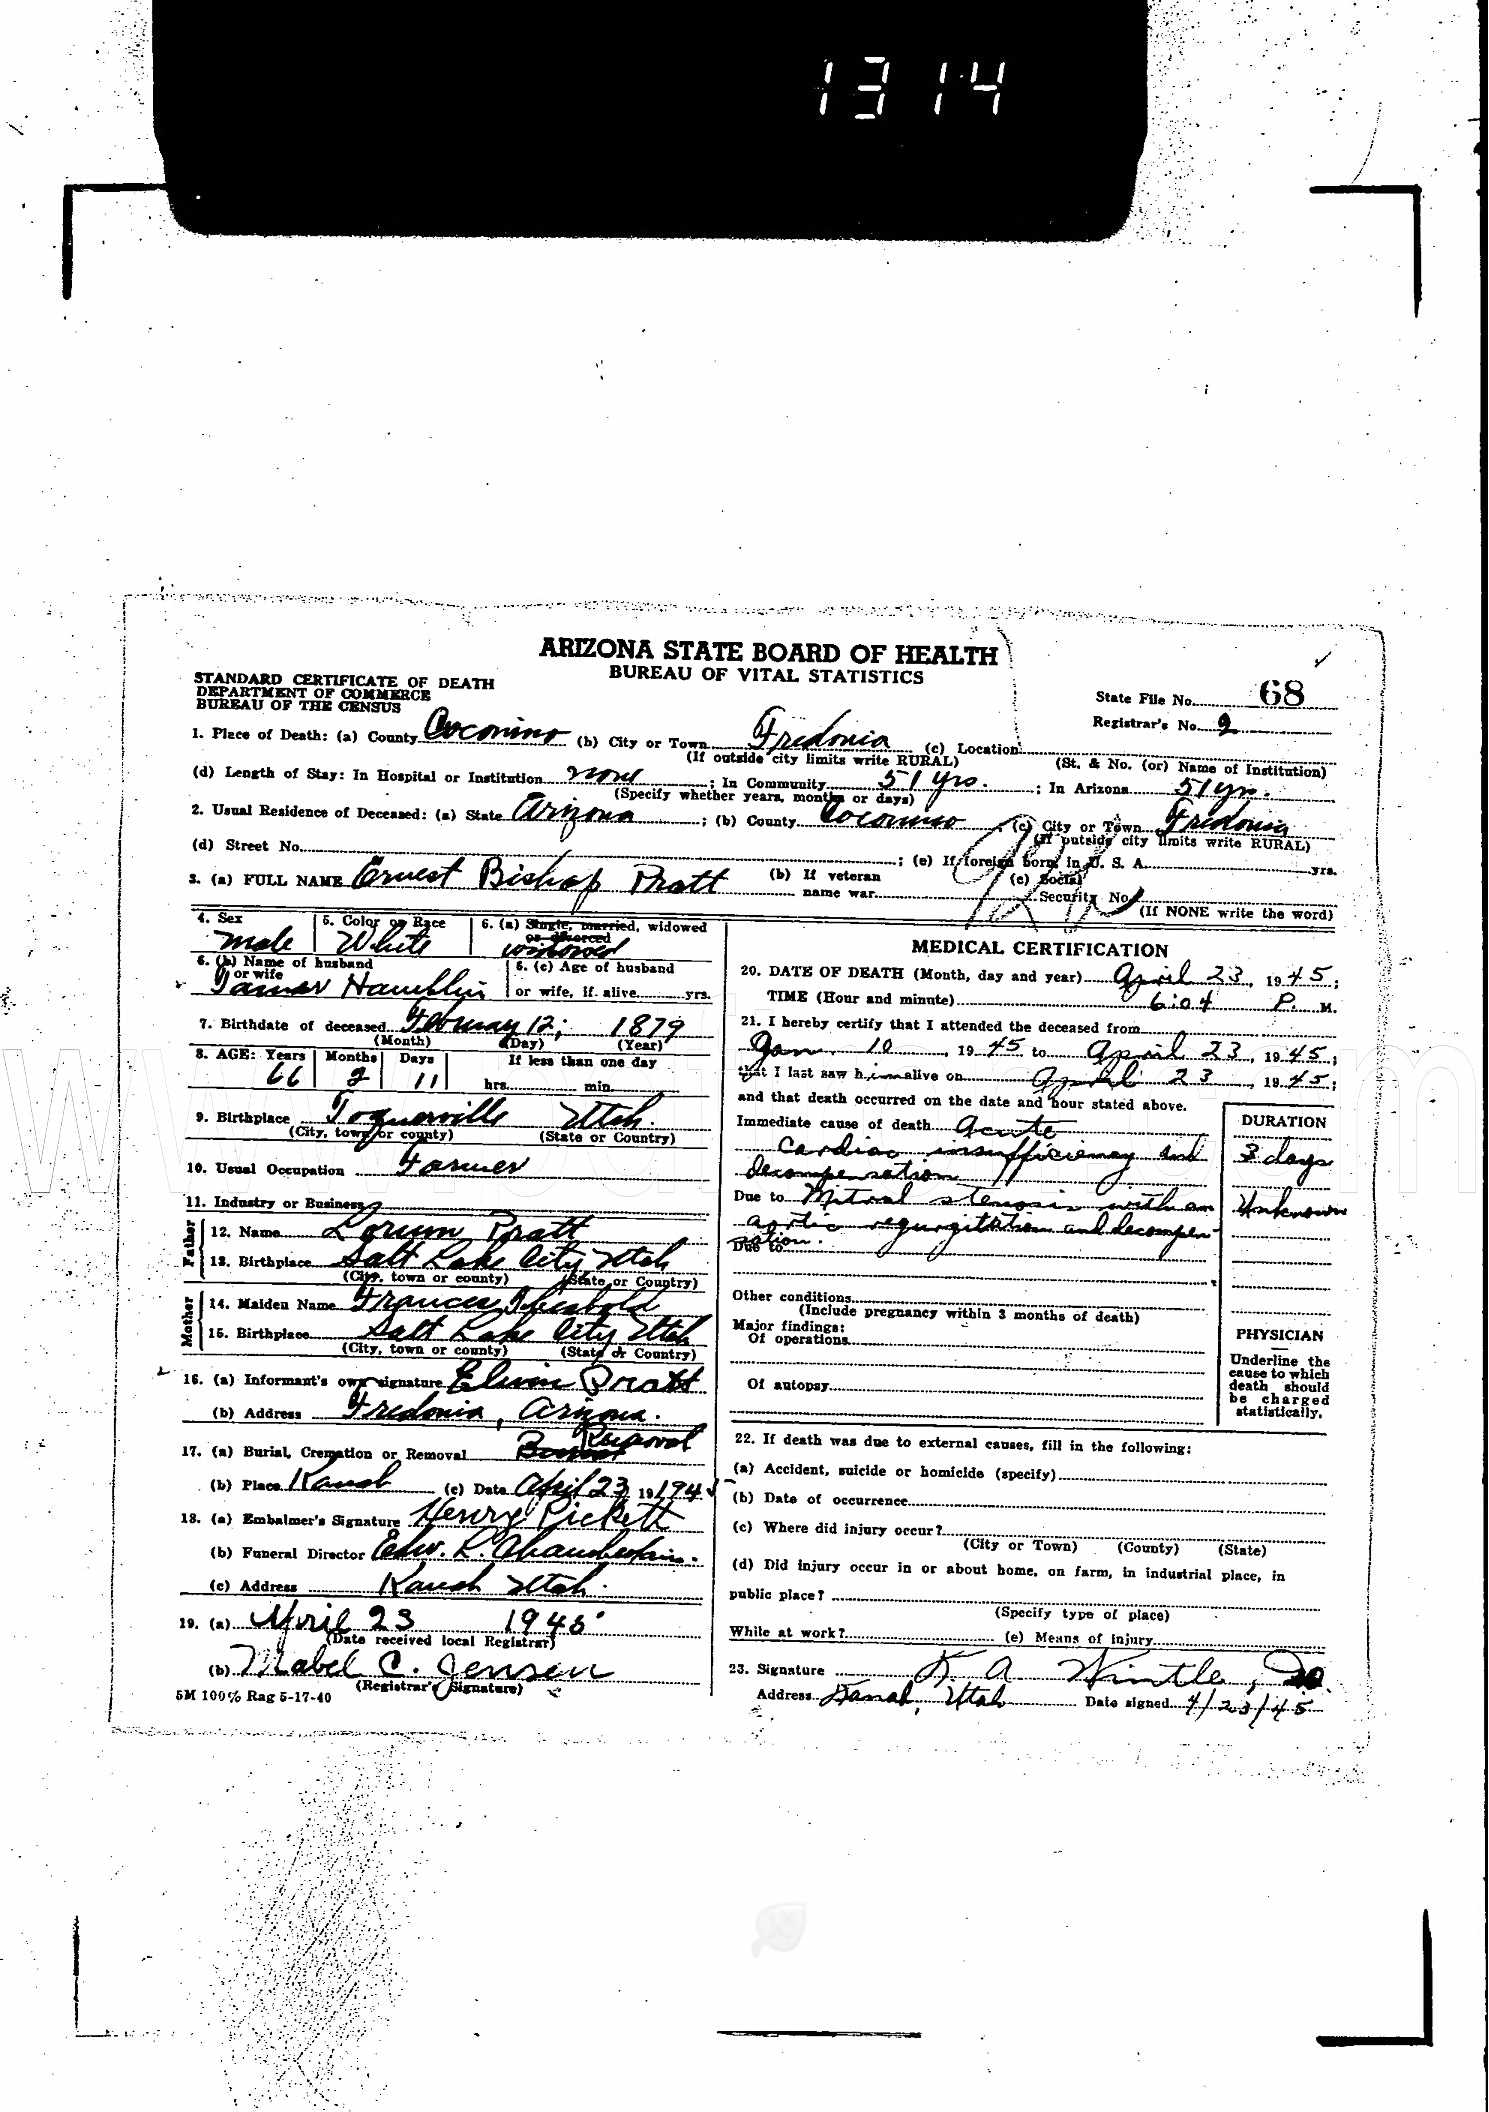 1314
ARIZONA STATE BOARD OF HEALTH
BUREAU OF VITAL STATISTICS
STANDARD CERTIFICATE OF DEATH
DEPARTMENT OF COMMERCE
BUREAU OF THE CENSUS
State File No. 68
Registrar's No. 9
1. Place of Death: (a) County Coconino (b) City or Town Fredonia (c) Location
(If outside city limits write RURAL) (St. & No. (or) Name of Institution)
(d) Length of Stay: In Hospital or Institution none ; In Community 51 yrs. ; In Arizona 51 yrs.
(Specify whether years, months or days)
2. Usual Residence of Deceased: (a) State Arizona ; (b) County Coconino ; (c) City or Town Fredonia
(If outside city limits write RURAL)
(d) Street No. ; (e) If foreign born, in U. S. A. yrs.
3. (a) FULL NAME Ernest Bishop Pratt (b) If veteran name war (c) Social Security No.
(If NONE write the word)
4. Sex Male
5. Color or Race White
6. (a) Single, married, widowed or divorced widowed
6. (b) Name of husband or wife Hamblin
6. (c) Age of husband or wife, if alive yrs.
7. Birthdate of deceased February 12, 1879
(Month) (Day) (Year)
8. AGE: Years 66 Months 2 Days 11 If less than one day hrs. min.
9. Birthplace Toquerville Utah.
(City, town or county) (State or Country)
10. Usual Occupation Farmer
11. Industry or Business
Father
12. Name Lorum Pratt
13. Birthplace Salt Lake City Utah
(City, town or county) (State or Country)
Mother
14. Maiden Name Frances Theobold
15. Birthplace Salt Lake City Utah
(City, town or county) (State or Country)
16. (a) Informant's own signature Elwin Pratt
(b) Address Fredonia, Arizona.
17. (a) Burial, Cremation or Removal Removal
(b) Place Kanab (c) Date April 23 19 194
18. (a) Embalmer's Signature Henry Pickett
(b) Funeral Director Edw. L. Chamberlain.
(c) Address Kanab Utah.
19. (a) April 23 1945
(Date received local Registrar)
(b) Mabel C. Jensen
(Registrar's Signature)
5M 100% Rag 5-17-40
MEDICAL CERTIFICATION
20. DATE OF DEATH (Month, day and year) April 23, 1945;
TIME (Hour and minute) 6:04 P. M.
21. I hereby certify that I attended the deceased from
Jan. 10, 1945 to April 23, 1945;
that I last saw him alive on April 23, 1945;
and that death occurred on the date and hour stated above.
Immediate cause of death Acute
cardiac insufficiency and
decompensation
Due to Mitral stenosis with an
aortic regurgitation and decompen-
sation.
Due to
DURATION
3 days
Unknown
Other conditions
(Include pregnancy within 3 months of death)
Major findings:
Of operations
Of autopsy
PHYSICIAN
Underline the
cause to which
death should
be charged
statistically.
22. If death was due to external causes, fill in the following:
(a) Accident, suicide or homicide (specify)
(b) Date of occurrence
(c) Where did injury occur?
(City or Town) (County) (State)
(d) Did injury occur in or about home, on farm, in industrial place, in
public place?
(Specify type of place)
While at work? (e) Means of Injury
23. Signature K. A. Wintle,
Address Kanab, Utah Date signed 4/23/45